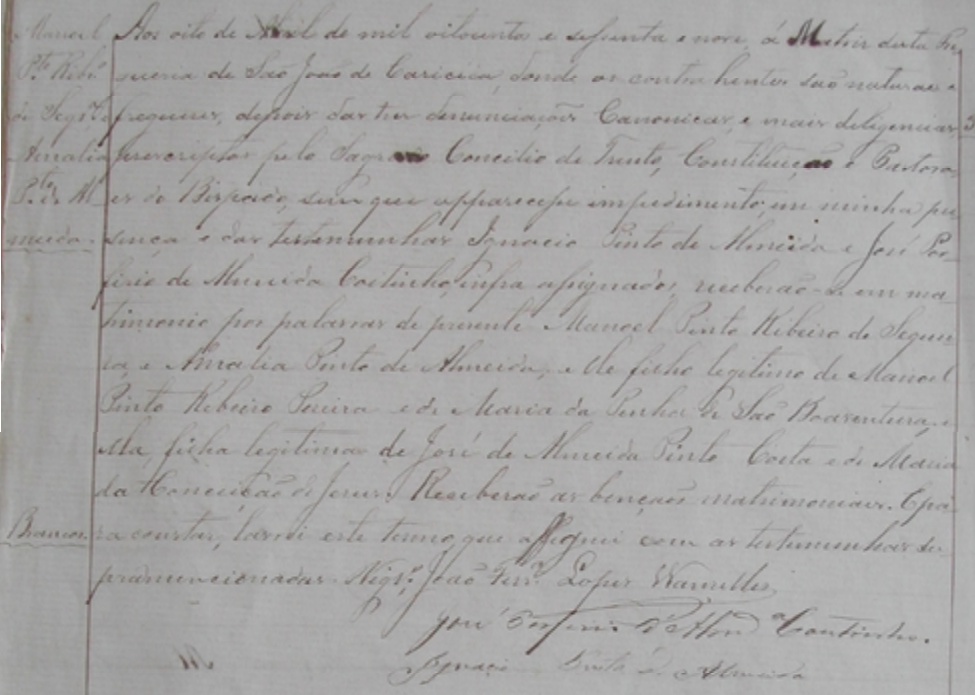 Manoel
P.to Rib.o
de Seqr.a e
Amalia
P.to de Al-
meida.
Brancos.
Aos oito de Abril de mil oitocentos e sessenta e nove, á Matriz desta Fre
guesia de São João de Cariacica, donde os contrahentes são naturaes e
freguezes, depois das tres denunciações Canonicas, e mais deligencias
prescriptas pelo Sagrado Concilio de Trento, Constituição e Pastora-
es do Bispado, sem que apparecesse impedimento, em minha pre
sença e das testemunhas Ignacio Pinto de Almeida e José Por
firio de Almeida Coitinho, infra assignados, receberão-se em ma
trimonio por palavras de presente Manoel Pinto Ribeiro de Sequei
ra, e Amalia Pinto de Almeida; elle filho legitimo de Manoel
Pinto Ribeiro Pereira e de Maria da Penha de São Boaventura, e
ella, filha legitima de José de Almeida Pinto Costa e de Maria
da Conceição de Jesus. Receberão as bençaos matrimoniaes. E pa-
ra constar, lavrei este termo, que assignei com as testemunhas su-
pramencionadas. Vigr.o João Ferr.a Lopes
José Porfirio d'Almd.a Coutinho.
Ignacio Pinto de Almeida